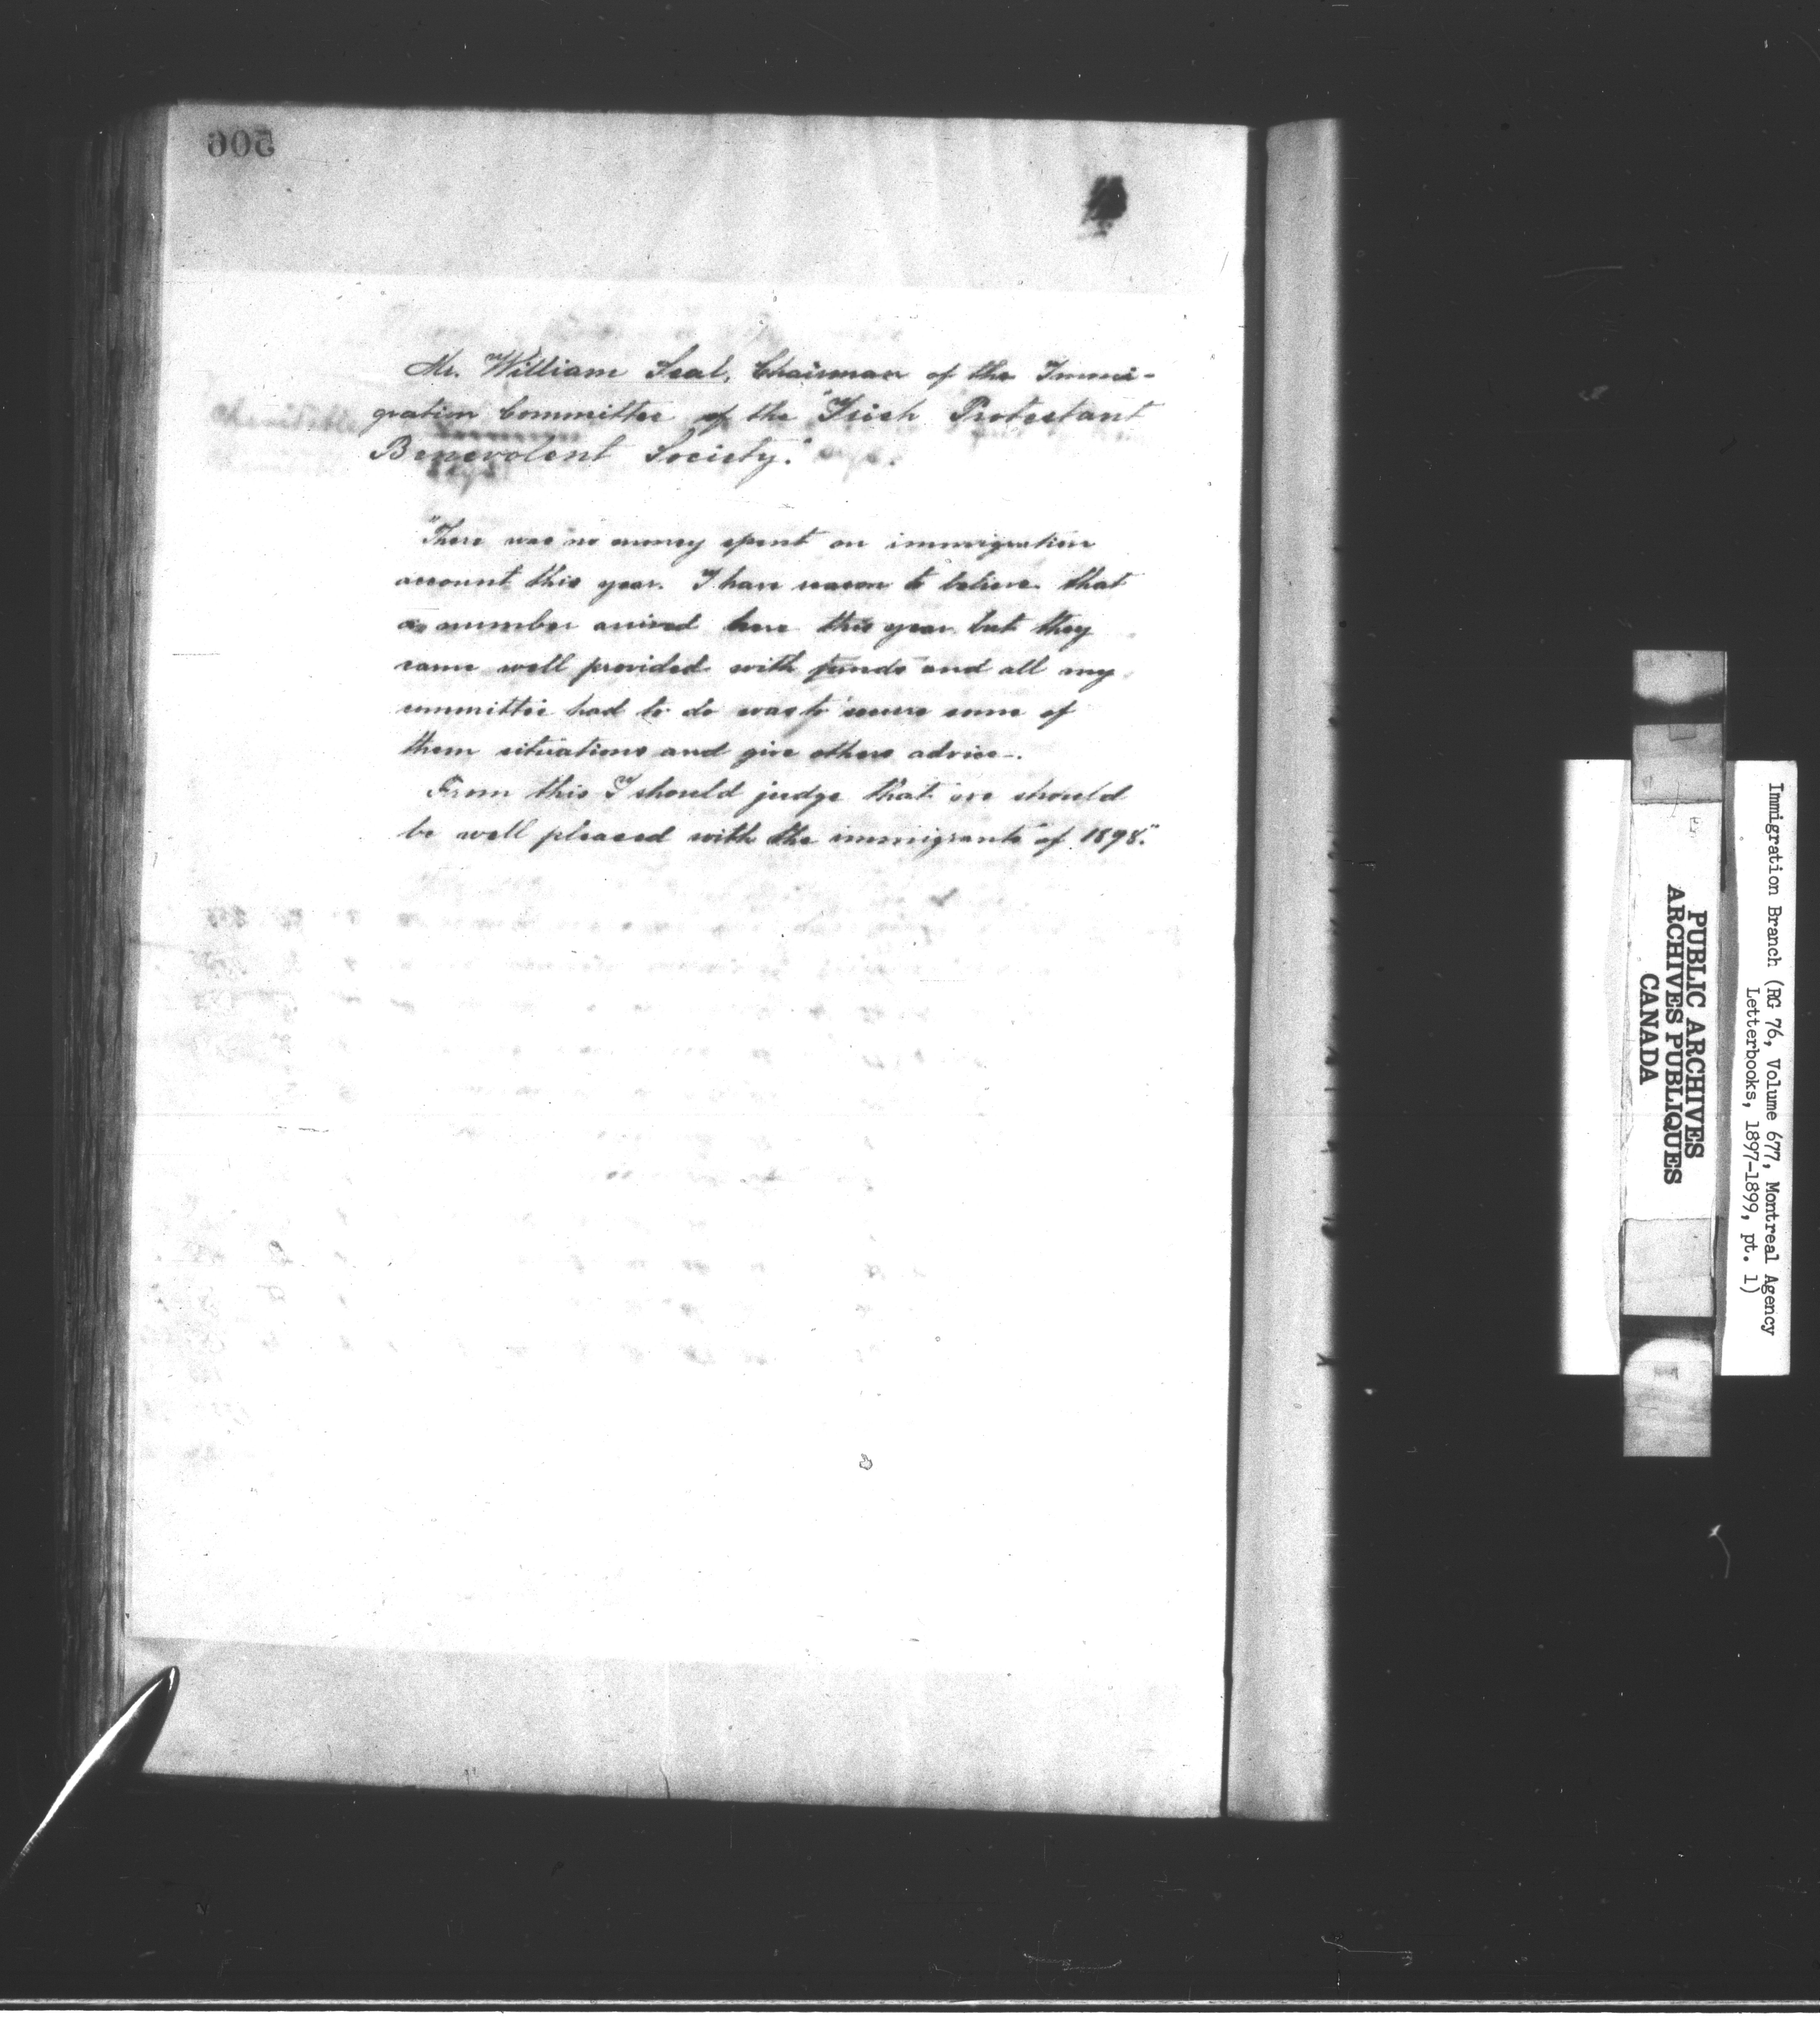 506
Mr. William Seal, Chairman of the Immi-
gration Committee of the "Irish Protestant
Benevolent Society."
"There was no money spent on immigration
account this year. I have reason to believe that
a number arived here this year but they
came well provided with funds and all my
committee had to do was to secure some of
them situations and give others advice-.
From this I should judge that we should
be well pleased with the immigrants of 1898."
Immigration Branch (RG 76, Volume 677, Montreal Agency
Letterbooks, 1897-1899, pt. 1)
PUBLIC ARCHIVES
ARCHIVES PUBLIQUES
CANADA